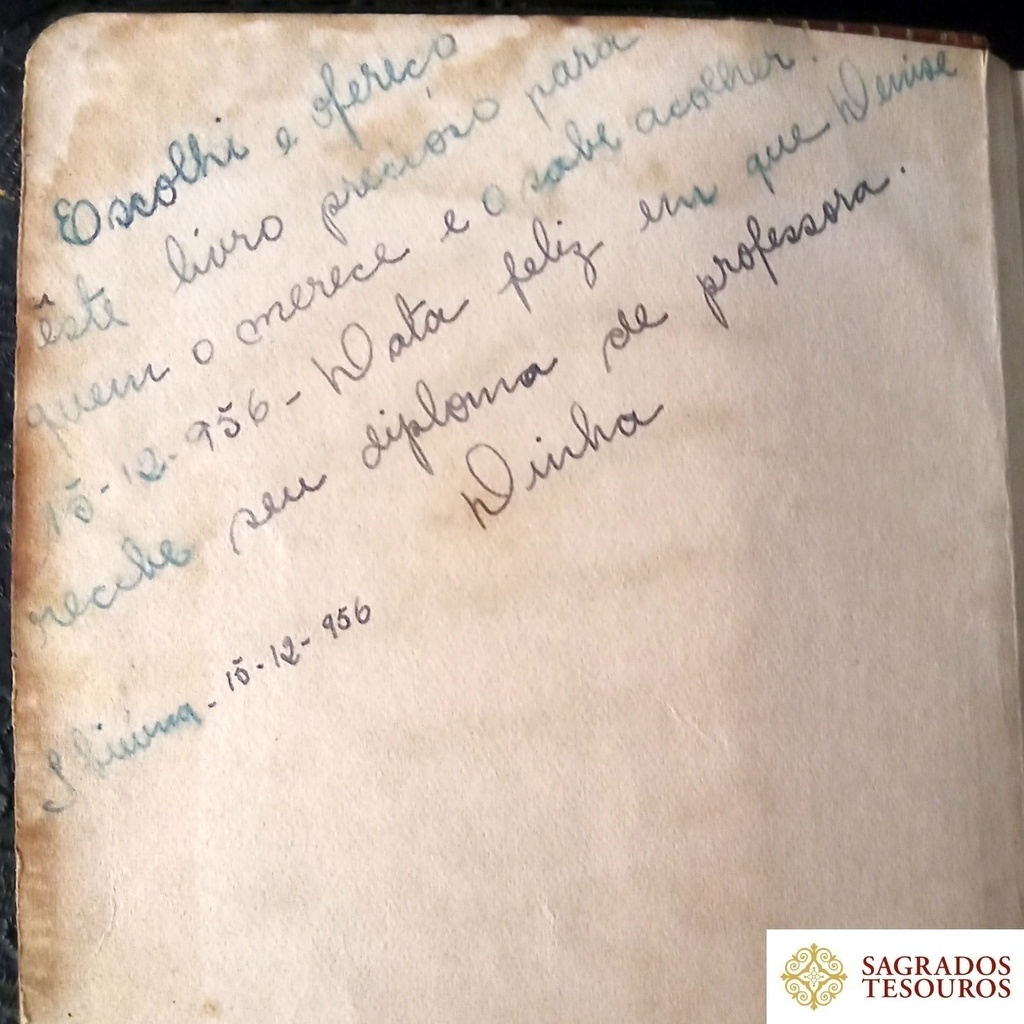 Escolhi e ofereço
êste livro precioso para
quem o merece e o sabe acolher.
15-12-956 - Data feliz em que Denise
recebe seu diploma de professora.
Dinha
15-12-956
SAGRADOS
TESOUROS